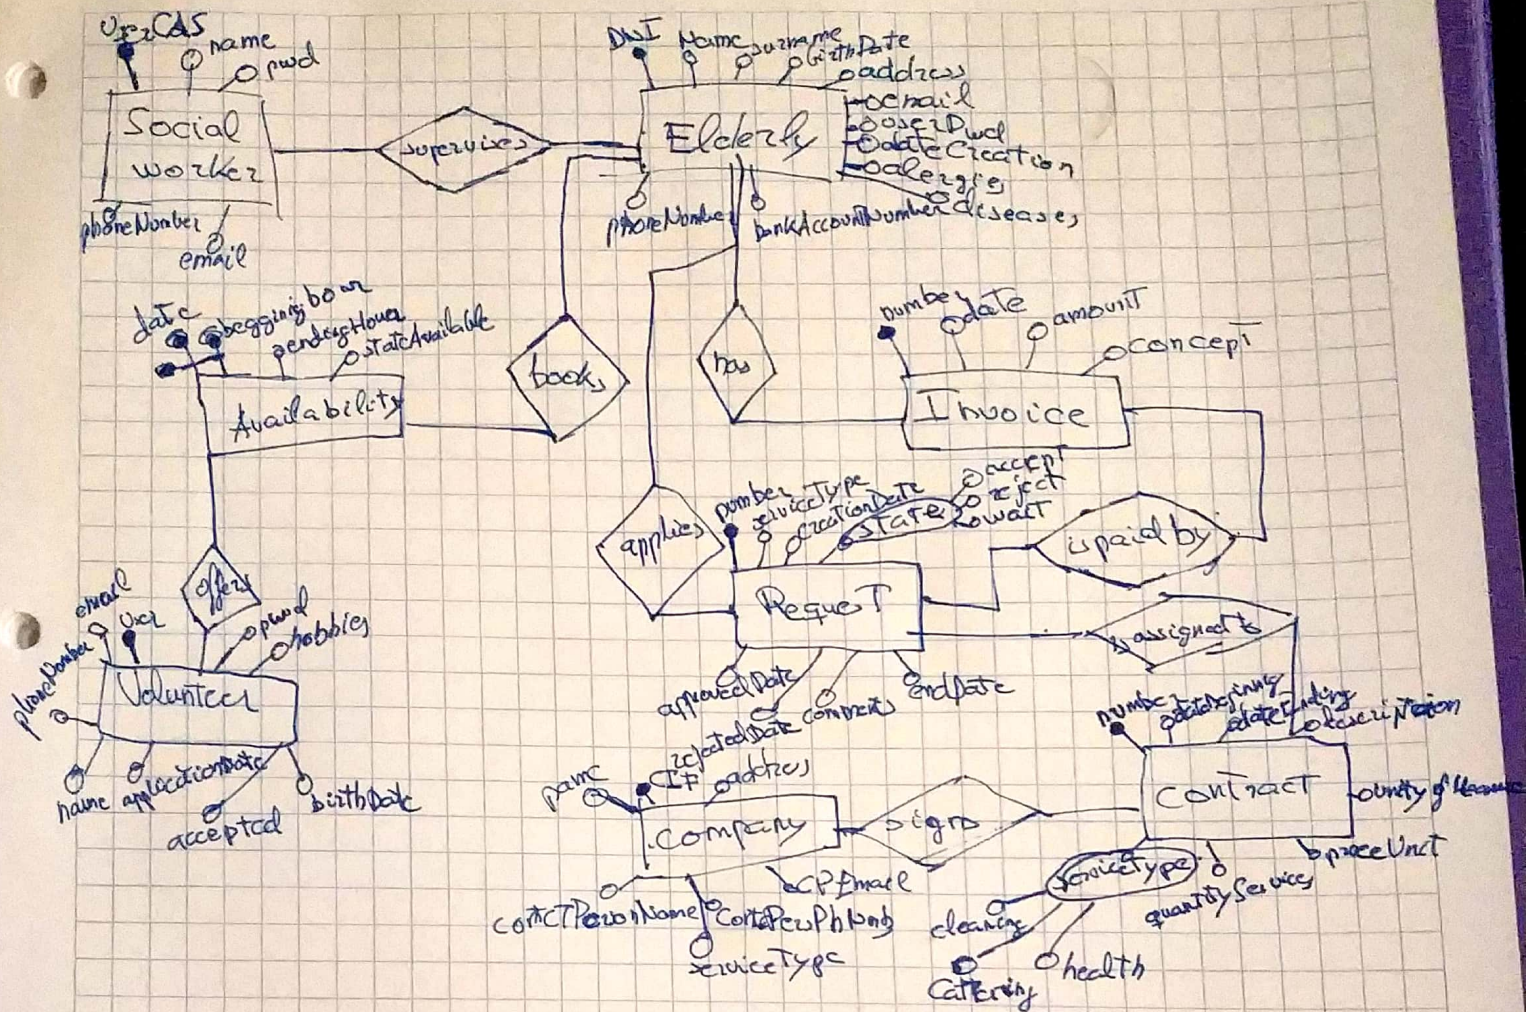 UserCAS
name
pwd
Social
worker
phoneNumber
email
supervises
DNI
Name
surname
birthDate
address
email
userPwd
dateCreation
alergies
diseases
Elderly
phoneNumber
bankAccountNumber
date
beggining hour
endingHour
stateAvailable
Availability
books
has
number
date
amount
concept
Invoice
applies
number
serviceType
creationDate
state
accept
reject
wait
is paid by
Request
is assigned to
approvedDate
rejectedDate
comments
endDate
offers
email
user
pwd
hobbies
phoneNumber
Volunteer
name
applicationDate
accepted
birthDate
name
CIF
address
Company
signs
contactPersonName
ContPersPhNmb
CPEmail
serviceType
number
dateBeginning
dateEnding
description
Contract
priceUnit
serviceType
quantityServices
cleaning
Cattering
health